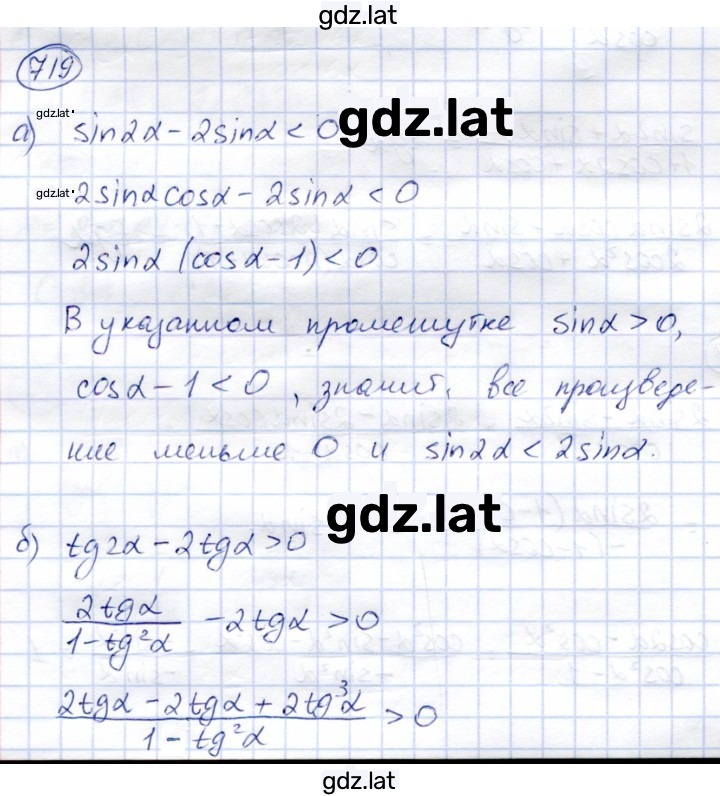 gdz.lat
719
gdz.lat
а) sin2α - 2sinα < 0
gdz.lat
gdz.lat
2sinα cosα - 2sinα < 0
2sinα (cosα - 1) < 0
В указанном промежутке sinα > 0,
cosα - 1 < 0, значит, все произведе-
ние меньше 0 и sin2α < 2sinα.
gdz.lat
б) tg2α - 2tgα > 0
2tgα / (1 - tg²α) - 2tgα > 0
(2tgα - 2tgα + 2tg³α) / (1 - tg²α) > 0
gdz.lat